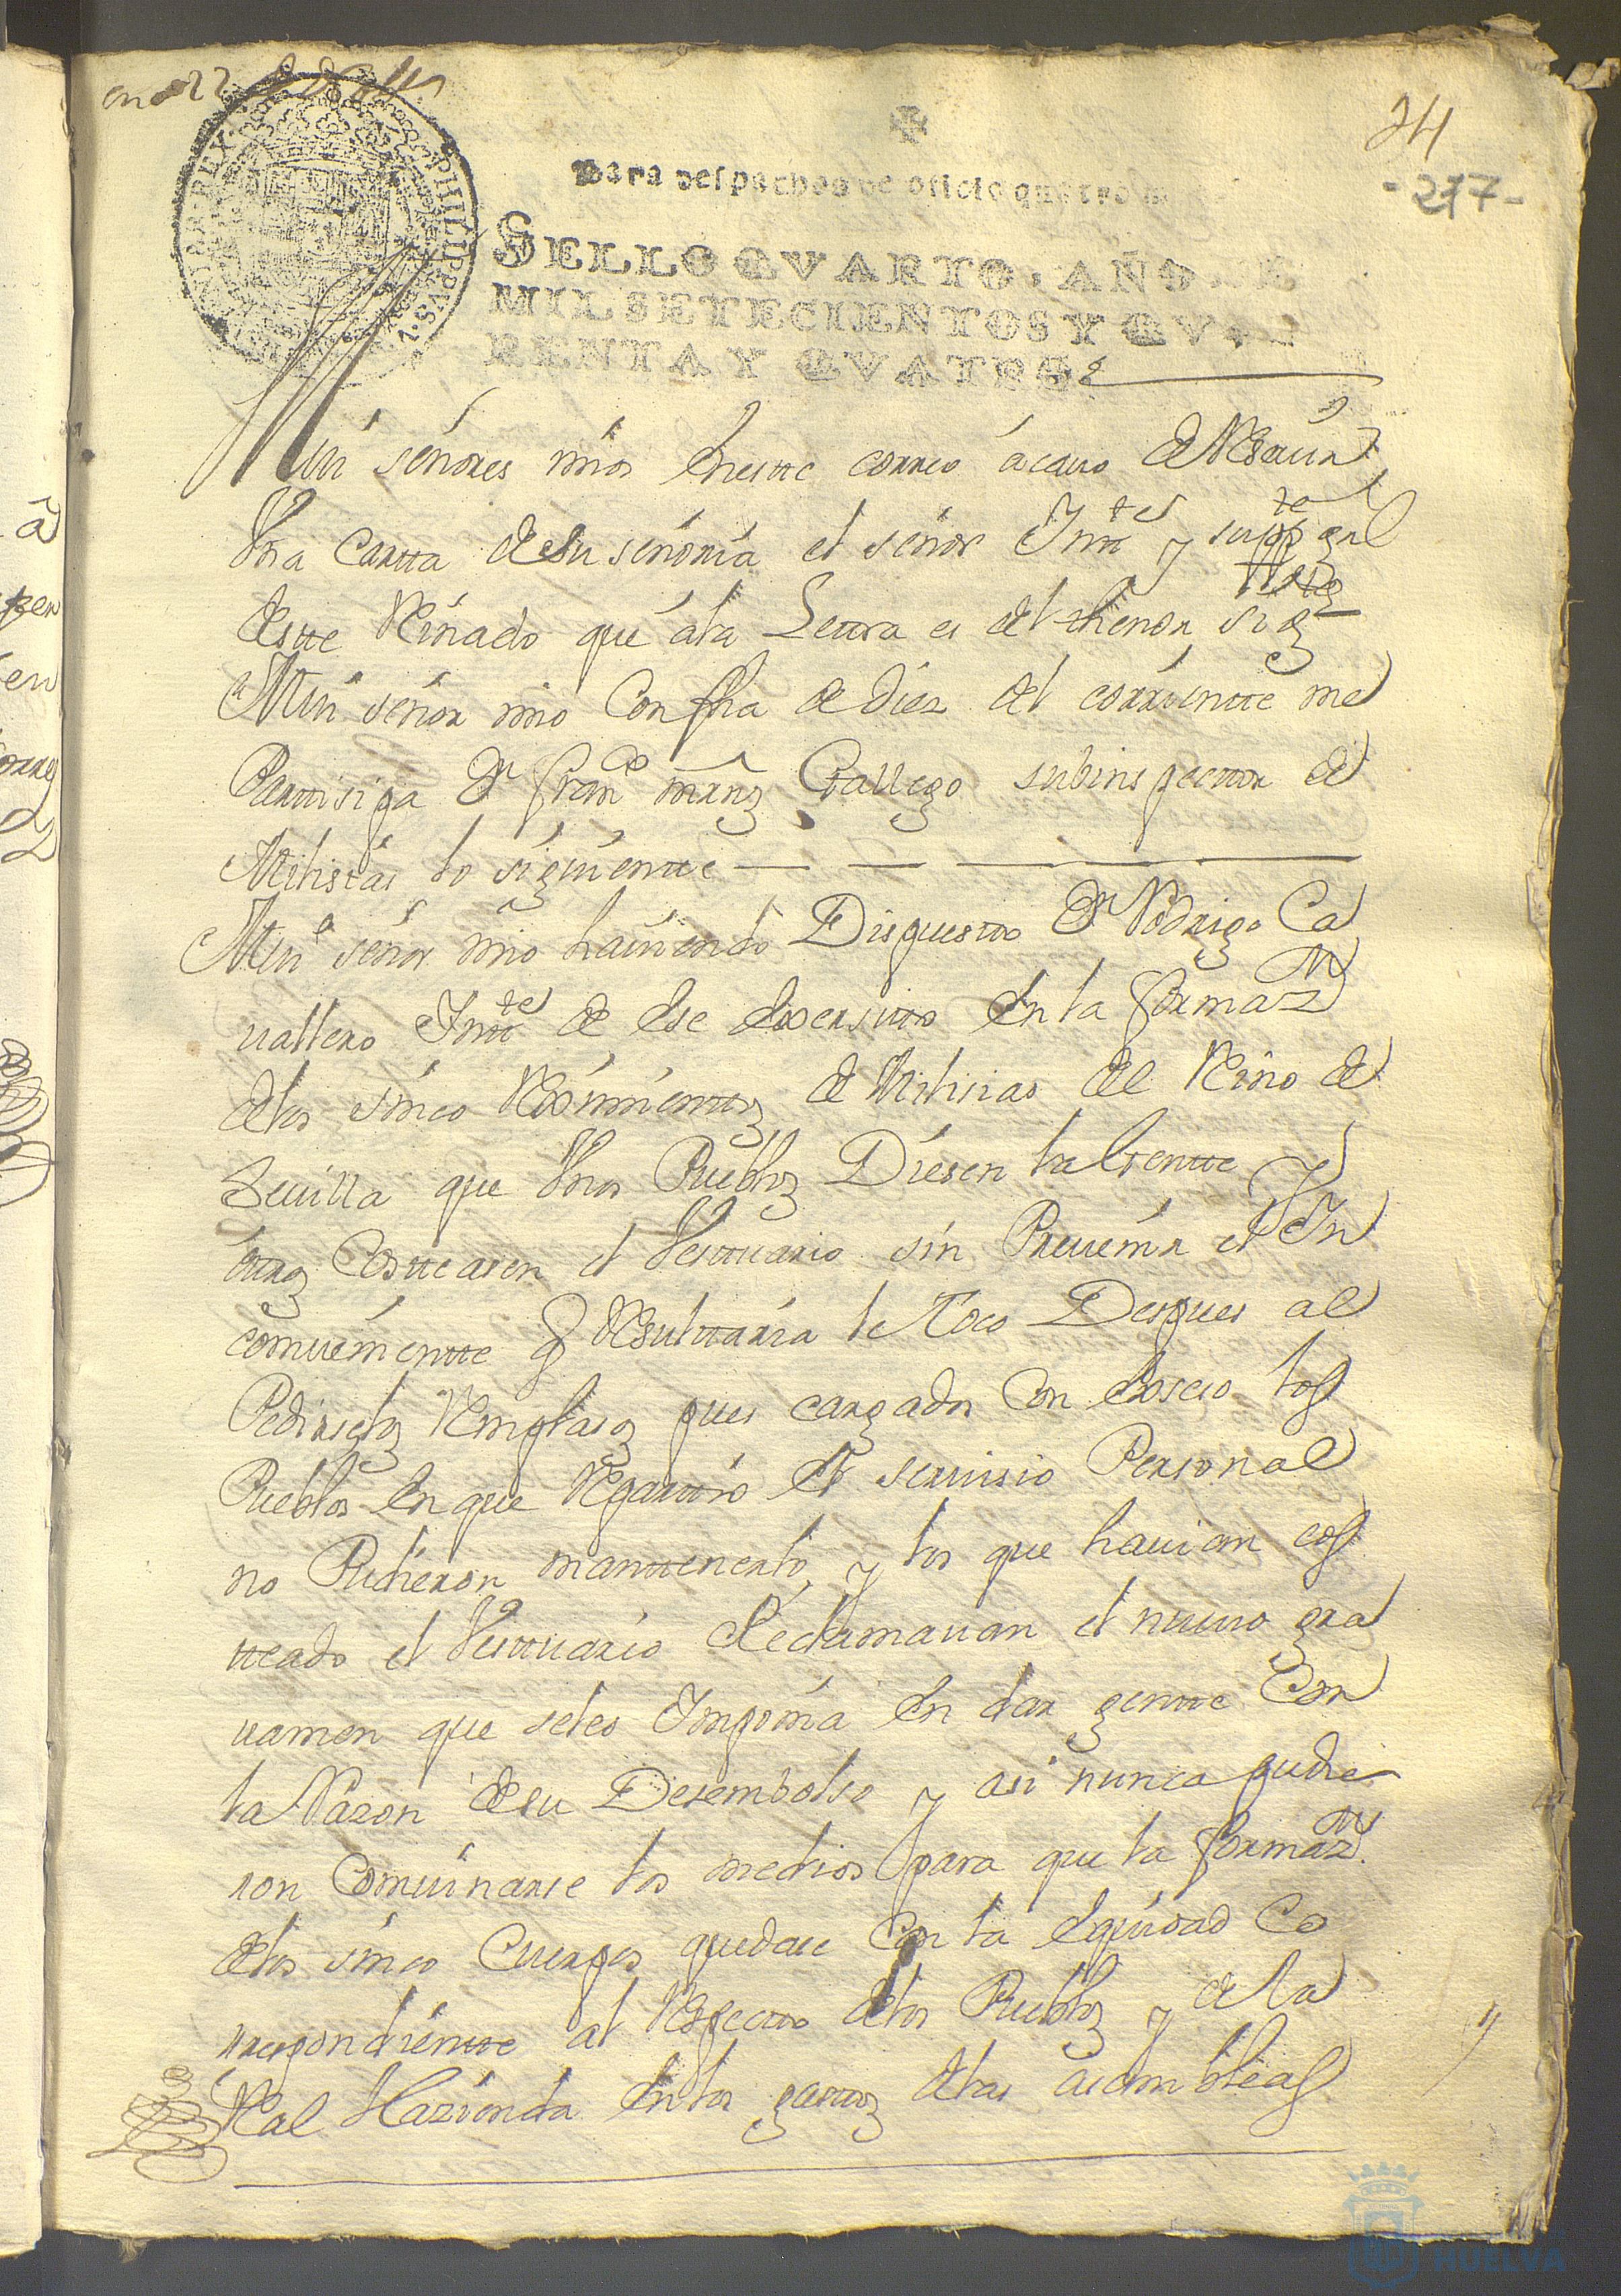 en 22
34
-217-
PHILIPPVS. V.
Para despachos de oficio quatro
SELLO QVARTO, AÑO
MIL SETECIENTOS Y QV
RENTA Y QVATRO.
Mui señores mios En este correo ácauo de Reseuir
Vna Cartta de su señoria el señor Intte y supte gral
deste Reinado que ála Lettra es del thenor sigte
Mui señor mio Con fha de diez del corrientte me
Parttisipa Dn Franco mrnz Gallego subinspecttor de
Milisias lo siguientte
Mui señor mio hauiendo Dispuestto Dn Rodrigo Ca
uallero Intte de Ese Exersitto En la formazn
delos sinco Reximienttos de Milisias del Reino de
Seuilla que Vnos Pueblos Diesen la Gentte Y
ottros Costteasen el Vesttuario sin Preuenir el In
conuenientte q Resulttaria le Toco Despues al
Pedirselos Remplasos pues cargados Con Exseso los
Pueblos En que Reparttio El seruisio Personal
no Pudieron manttenerlo, y los que hauian cos
tteado el Vesttuario Reclamauan el nueuo gra
uamen que seles Imponia En dar gentte Con
la Razon de su Desembolso y asi nunca pudie
ron Comuinarse los medios para que la formazn
delos sinco Cuerpos quedase Con la Equidad Co
rrespondientte al Respectto delos Pueblos y de la
Real Hazienda En los gasttos delas asambleas
HUELVA